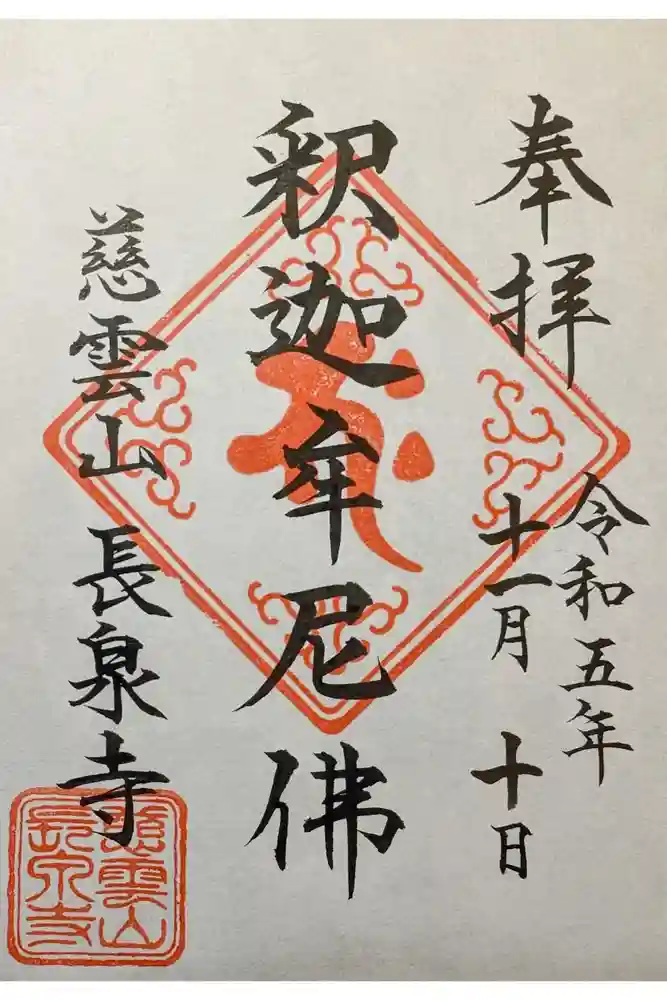 奉拝
令和五年
十一月 十日
釈迦牟尼佛
慈雲山 長泉寺
慈雲山
長泉寺